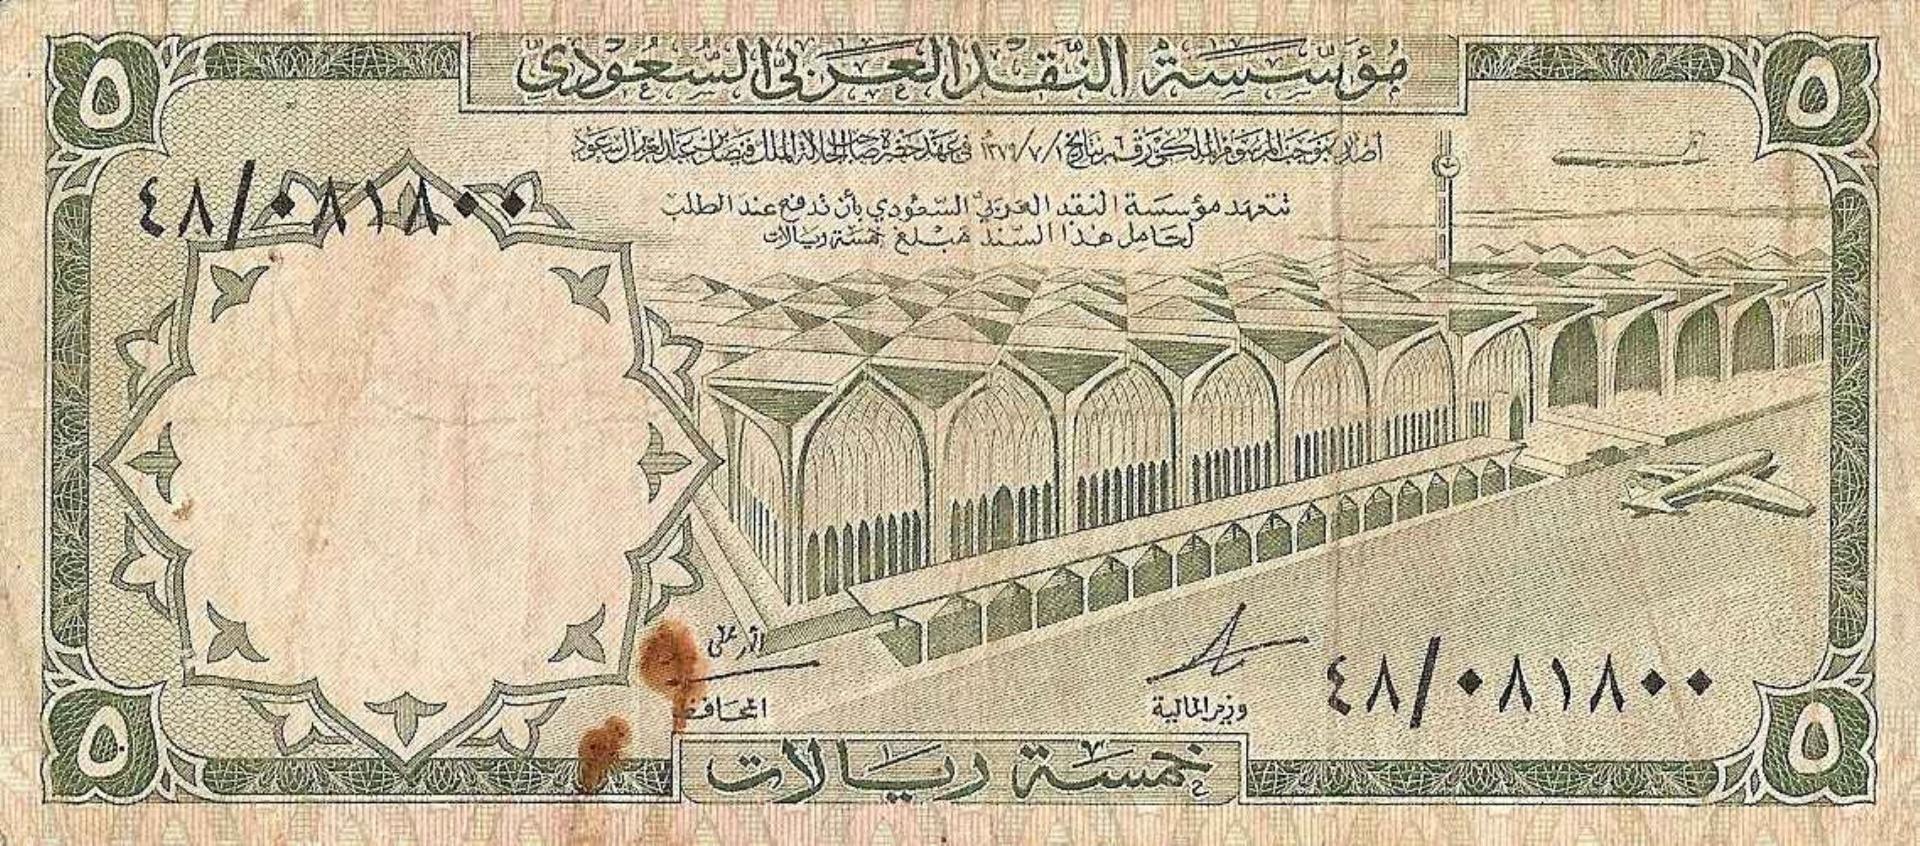 مؤسسة النقد العربي السعودي
٥
٥
أصدر بموجب المرسوم الملكي رقم ٦ بتاريخ ١٣٧٩/٧/١ في عهد حضرة صاحب الجلالة الملك فيصل بن عبد العزيز آل سعود
٤٨/٠٨١٨٠٠
تتعهد مؤسسة النقد العربي السعودي بأن تدفع عند الطلب
لحامل هذا السند مبلغ خمسة ريالات
٤٨/٠٨١٨٠٠
وزير المالية
المحافظ
٥
٥
خمسة ريالات